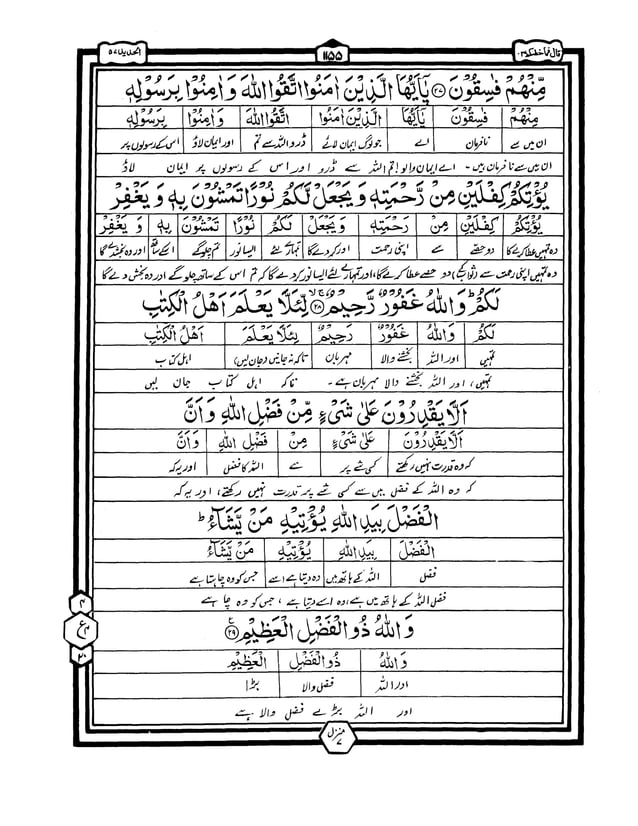 قال فما خطبکم ۲۷
۱۱۵۵
الحدید ۵۷
مِّنْهُمْ فٰسِقُوْنَ ۝۲۷ یٰۤاَیُّهَا الَّذِیْنَ اٰمَنُوا اتَّقُوا اللّٰهَ وَ اٰمِنُوْا بِرَسُوْلِهٖ
مِنْهُمْ فٰسِقُوْنَ یٰۤاَیُّهَا الَّذِیْنَ اٰمَنُوا اتَّقُوا اللّٰهَ وَاٰمِنُوْا بِرَسُوْلِهٖ
ان میں سے نافرمان اے جو لوگ ایمان لائے ڈرو اللہ سے تم اور ایمان لاؤ اس کے رسولوں پر
ان میں سے نافرمان ہیں۔ اے ایمان والو! تم اللہ سے ڈرو اور اس کے رسولوں پر ایمان لاؤ
یُؤْتِكُمْ كِفْلَیْنِ مِنْ رَّحْمَتِهٖ وَ یَجْعَلْ لَّكُمْ نُوْرًا تَمْشُوْنَ بِهٖ وَ یَغْفِرْ
یُؤْتِكُمْ كِفْلَیْنِ مِنْ رَحْمَتِهٖ وَیَجْعَلْ لَكُمْ نُوْرًا تَمْشُوْنَ بِهٖ وَ یَغْفِرْ
وہ تمہیں عطا کرے گا دو حصے سے اپنی رحمت اور کردے گا تمہارے لئے ایسا نور تم چلو گے اسکے ساتھ اور وہ بخشدے گا
وہ تمہیں اپنی رحمت سے (ثواب کے) دو حصے عطا کرے گا، اور تمہارے لئے ایسا نور کر دے گا کہ تم اس کے ساتھ چلو گے اور وہ بخش دے گا
لَكُمْ ؕ وَ اللّٰهُ غَفُوْرٌ رَّحِیْمٌ ۝۲۸ لِّئَلَّا یَعْلَمَ اَهْلُ الْكِتٰبِ
لَكُمْ وَاللّٰهُ غَفُوْرٌ رَحِیْمٌ لِئَلَّا یَعْلَمَ اَهْلُ الْكِتٰبِ
تمہیں اور اللہ بخشنے والا مہربان تاکہ نہ جانیں (جان لیں) اہل کتاب
تمہیں، اور اللہ بخشنے والا مہربان ہے۔ تاکہ اہل کتاب جان لیں
اَلَّا یَقْدِرُوْنَ عَلٰی شَیْءٍ مِّنْ فَضْلِ اللّٰهِ وَ اَنَّ
اَلَّا یَقْدِرُوْنَ عَلٰی شَیْءٍ مِنْ فَضْلِ اللّٰهِ وَاَنَّ
کہ وہ قدرت نہیں رکھتے کسی شے پر سے اللہ کا فضل اور یہ کہ
کہ وہ اللہ کے فضل میں سے کسی شے پر قدرت نہیں رکھتے، اور یہ کہ
الْفَضْلَ بِیَدِ اللّٰهِ یُؤْتِیْهِ مَنْ یَّشَآءُ ؕ
الْفَضْلَ بِیَدِ اللّٰهِ یُؤْتِیْهِ مَنْ یَّشَآءُ
فضل اللہ کے ہاتھ میں وہ دیتا ہے اسے جس کو وہ چاہتا ہے
فضل اللہ کے ہاتھ میں ہے، وہ اسے دیتا ہے، جس کو وہ چاہے
وَ اللّٰهُ ذُو الْفَضْلِ الْعَظِیْمِ ۝۲۹
وَاللّٰهُ ذُو الْفَضْلِ الْعَظِیْمِ
اور اللہ فضل والا بڑا
اور اللہ بڑے فضل والا ہے
۴
ع
۲۰
منزل
۷